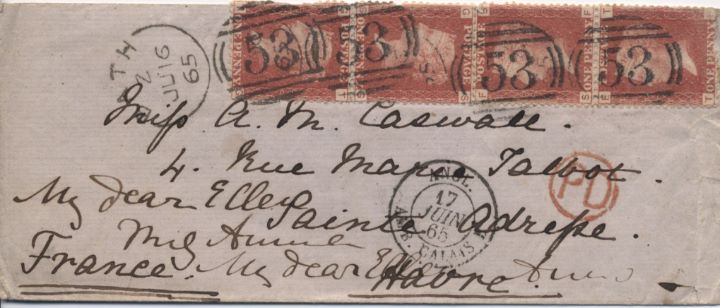 53 53 53 53
TH
JU 16
65
Miss A. M. Caswall.
4. Rue Marie Talbot.
My dear Ellen
Sainte Adresse.
My dear Elle
France.
Havre.
ANGL.
17
JUIN
65
AMB. CALAIS
PD